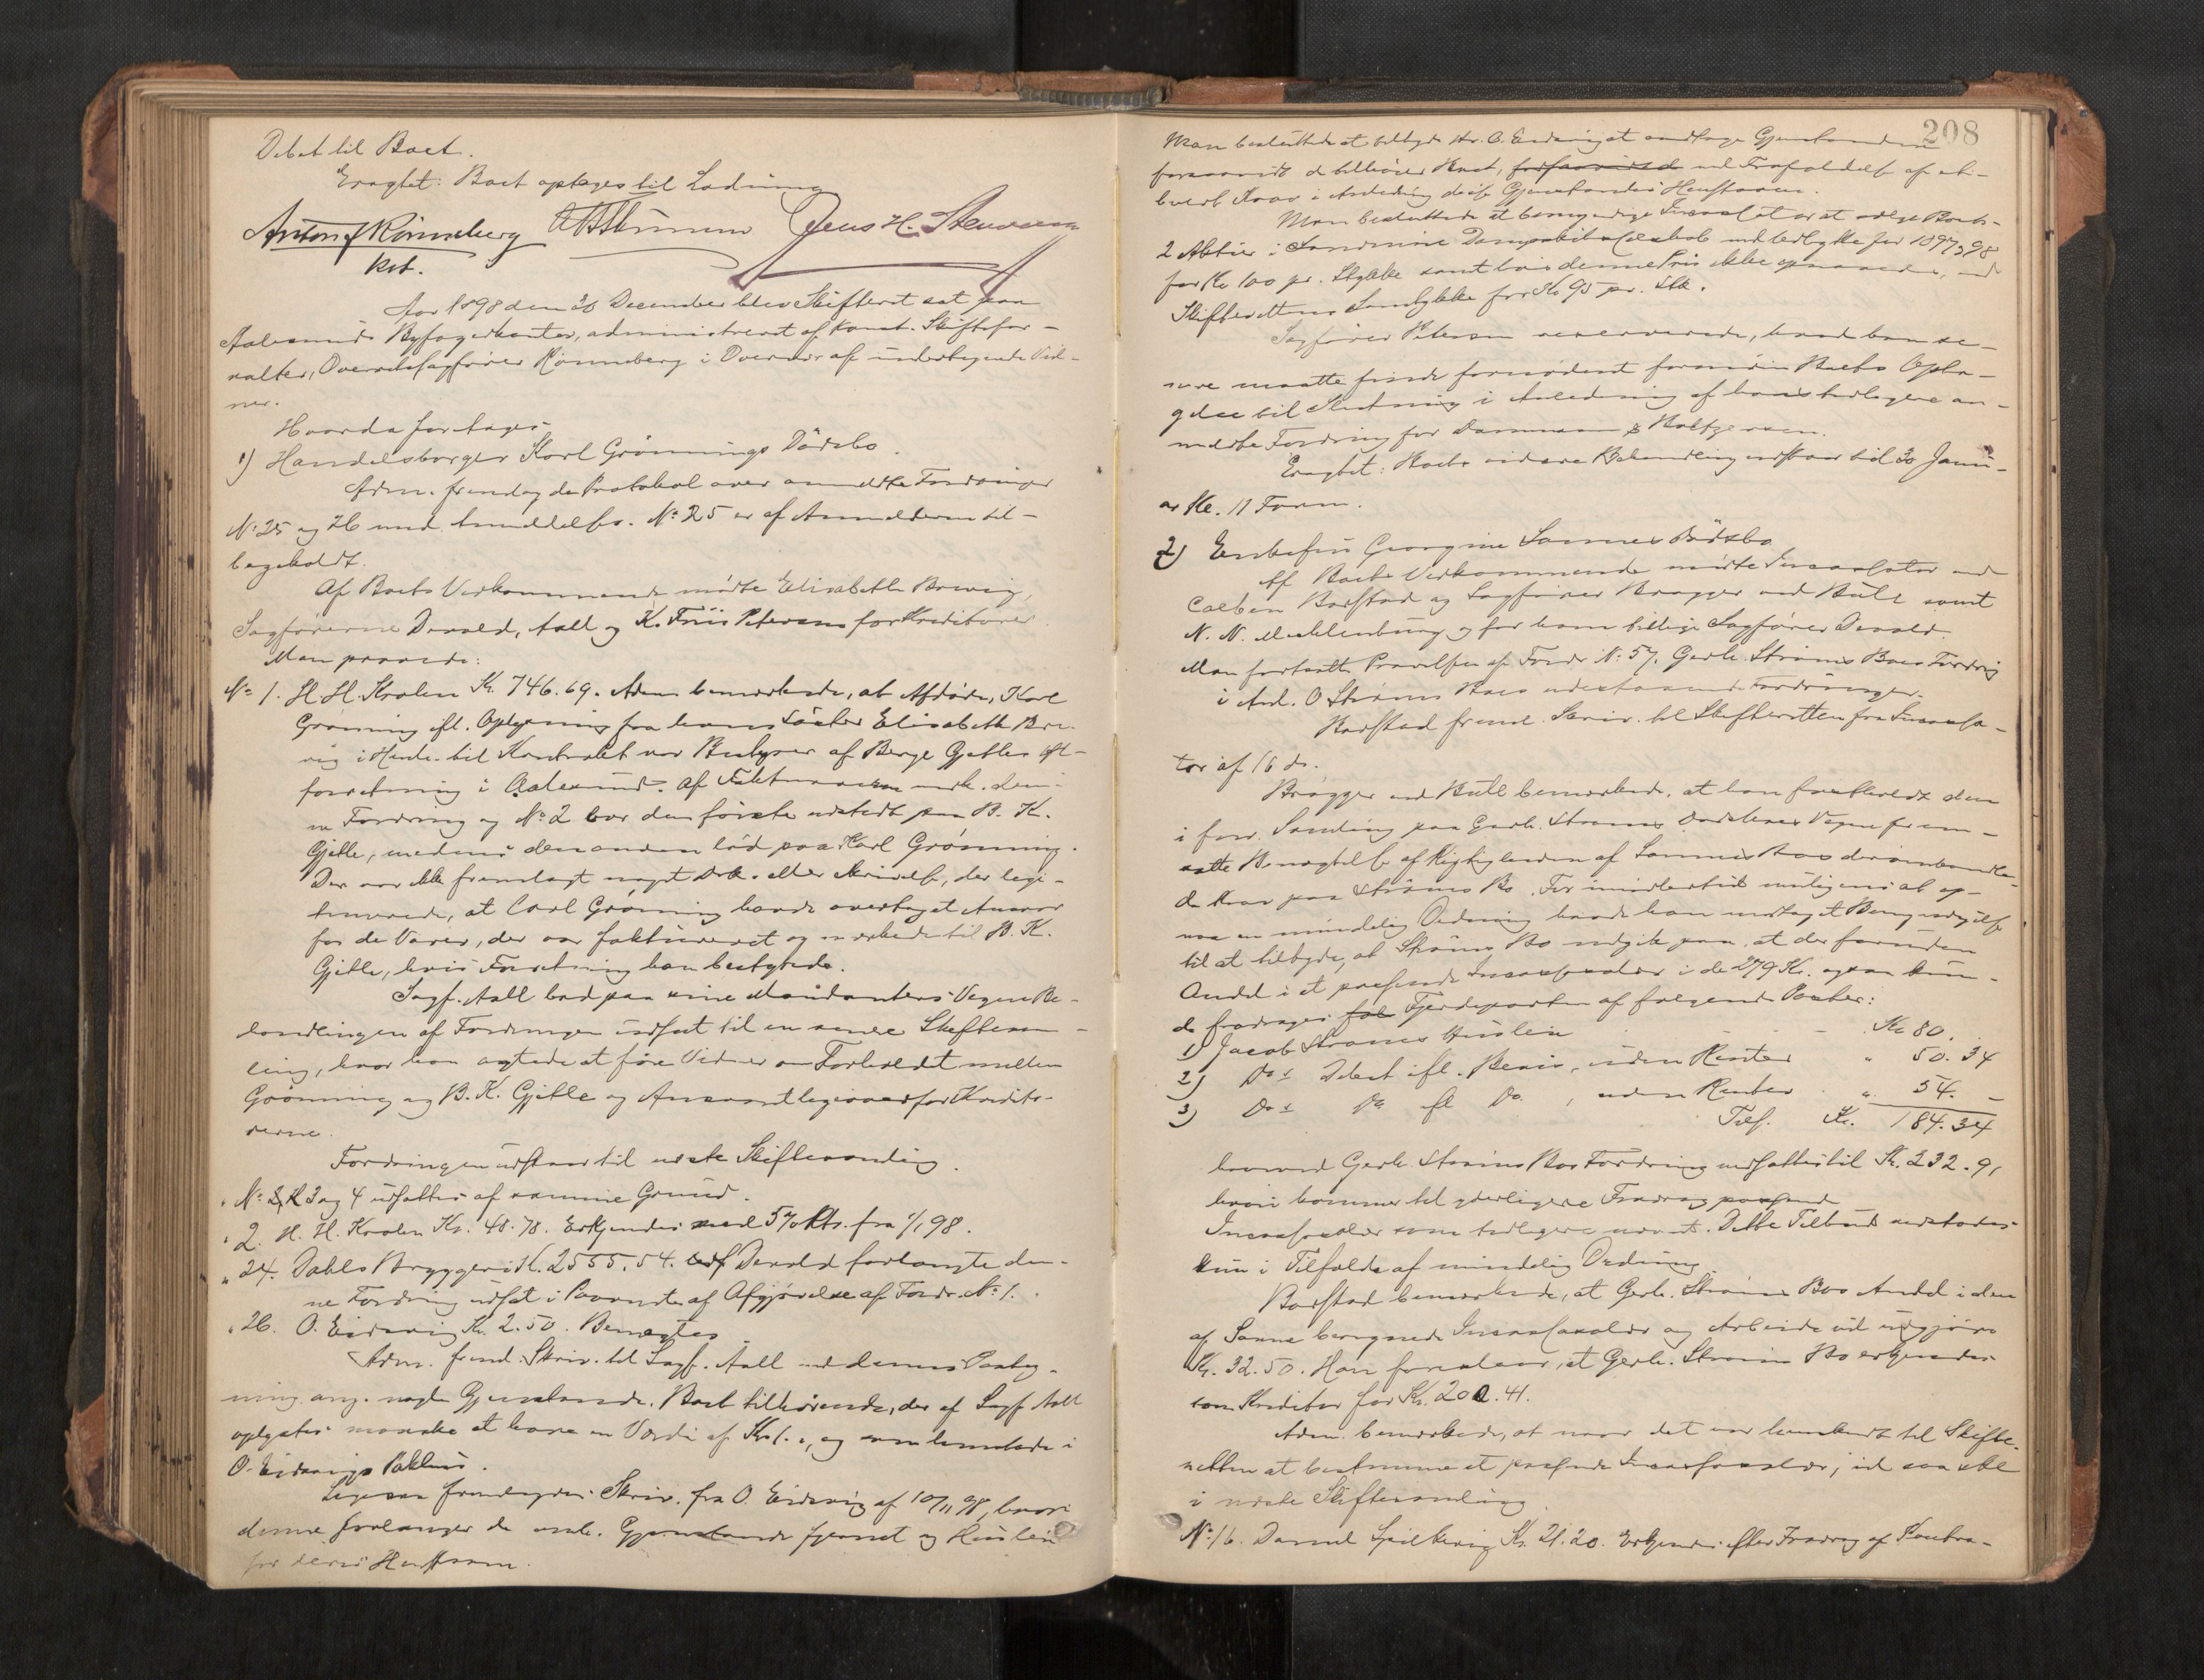 Debet til Boet.
Eragtet: Boet optages til Lodning
Anton J Rønneberg Jens H. Stenersen
kst.
Aar 1898 den 30 December blev Skifteret sat paa
Aalesunds Byfogedkontor, administreret af Konst. Skiftefor-
valter, Overretssagfører Rønneberg i Overvær af undertegnede Vid-
ner.
Hvorda foretages:
1) Handelsborger Karl Grønnings Dödsbo.
Adm. fremlagde Protokol over anmeldte Fordringer
No 25 og 26 med Anmeldelser. No 25 er af Anmelderen til-
bageholdt.
Af Boets Vedkommende mødte Elisabeth Brevig,
Sagförerne Devold, Aall og K. Friis Petersen for Kreditorer.
Man prøvede:
No 1. H. H. Kralen Kr. 746.69. Adm. bemærkede, at Afdøde, Karl
Grønning efl. Oplysning fra hans Søster Elisabeth Bre-
vig i Henh. til Kontrakt var Bestyrer af Berge Gjetles
forretning i Aalesund. Af Fakturaerne vedk. den-
ne Fordring og No 2 var den første udstedt paa B. K.
Gjetle, medens den anden lød paa Karl Grønning.
Der var ikke fremlagt noget Dok. eller Skrivelse, der legi-
timerede, at Carl Grønning havde overtaget Ansvar
for de Varer, der var faktureret og til B. K.
Gjetle, hvis Forretning han bestyrede.
Sagf. Aall bad paa sine Mandanters Vegne Be-
handlingen af Fordringen udsat til en senere Skiftesam-
ling, hvor han agtede at føre Vidner om Forholdet mellem
Grønning og B. K. Gjetle og Ansvar ligeoverfor Kredito-
rerne.
Fordringen udstaar til næste Skiftesamling.
No 3 og 4 udsattes af samme Grund.
" 2. H. H. Kralen Kr. 48.78. Erkjendes med 5% Rts. fra 1/1 98.
" 24. Dahls Bryggeri K. 2555.54. Devold forlangte den-
ne Fordring udsat i Paavente af Afgjørelse af Fordr. No 1.
" 26. O. Eidsvig Kr. 2.50. Benegtes.
Adm. freml. Skriv. til Sagf. Aall med dennes Paateg-
ning ang. nogle Gjenstande, Boet tilhørende, der af Sagf. Aall
opgaves maaske at have en Værdi af Kr. 1.-, og som henstode i
O. Eidsvigs Pakhus.
Ligesaa fremlagdes Skriv. fra O. Eidsvig af 10/11 98, hvori
denne forlanger de Gjenstande fjernet og Husleie
for deres Henstaaen.
208
Man besluttede at tilbyde Hr. O. Eidsvig at modtage Gjenstandene
forsaavidt de tilhører Boet, mod Frafaldelse af et-
hvert Krav i Anledning disse Gjenstandes Henstaaen.
Man besluttede at bemyndige Incassator at sælge Boets
2 Aktier i Søndmøre Dampskibsselskab med Udbytte for 1897 & 98
for Kr 100 pr. Stykke samt hvis denne Pris ikke opnaaedes, med
Skifterettens Samtykke for Kr 95 pr. Stk.
Sagfører Petersen reserverede, hvad han se-
nere maatte finde fornødent forinden Boets Opta-
gelse til Slutning i Anledning af hans tidligere an-
meldte Fordring for Dammann & Holtzermann.
Eragtet: Boets videre Behandling udstaar til 30 Janu-
ar Kl. 11 Form.
2) Enkefru Georgine Sannes Dödsbo
Af Boets Vedkommende mødte Incassator ved
Barstad og Sagfører Brøgger ved Bull samt
N. N. Mecklenburg og for ham tillige Sagfører Devold.
Man fortsatte Prøvelsen af Fordr. No 57. Gerh. Strøms Boes Fordring
i Anl. O Strøms Boes udestaaende Fordringer.
Barstad freml. Skriv. til Skifteretten fra Incassa-
tor af 16 ds.
Brøgger ved Bull bemærkede, at han fastholdt den
i forr. Samling paa Gerh. Strøms Dødsboes Vegne frem-
satte Benægtelse af Rigtigheden af Sannes Boes
de Krav paa Strøms Bo. For imidlertid muligens at op-
naa en mindelig Ordning havde han modtaget Bemyndigelse
til at tilbyde, at Strøms Bo indgik paa, at der foruden
Andel i et passende Incassosalær i de 279 Kr. ogsaa kun-
de fradrages Fjerdeparten af følgende Poster:
1) Jacob Strøms Husleie Kr 80.
2) Do s Debet ifl. Bevis, uden Renter " 50.34
3) Do s Do ifl Do, uden Renter " 54. -
Tils. Kr. 184.34
hvorved Gerh. Strøms Boes Fordring nedsattes til Kr. 232.91
hvori kommer til yderligere Fradrag
Incassosalær som tidligere nævnt. Dette Tilbud vedstodes
kun i Tilfælde af mindelig Ordning.
Barstad bemærkede, at Gerh. Strøms Boes Andel i den
af Sanne beregnede Incassosalær og Arbeide vil udgjøre
Kr. 32.50. Han foreslaar, at Gerh. Strøms Bo erkjendes
som Kreditor for Kr. 200.41.
Adm. bemærkede, at naar det var henskudt til Skifte-
retten at bestemme et passende Incassosalær, vil saa ske
i næste Skiftesamling.
No 16. Daniel Spilkevig Kr. 21.20. Erkjendes efter Fradrag af Kontra-